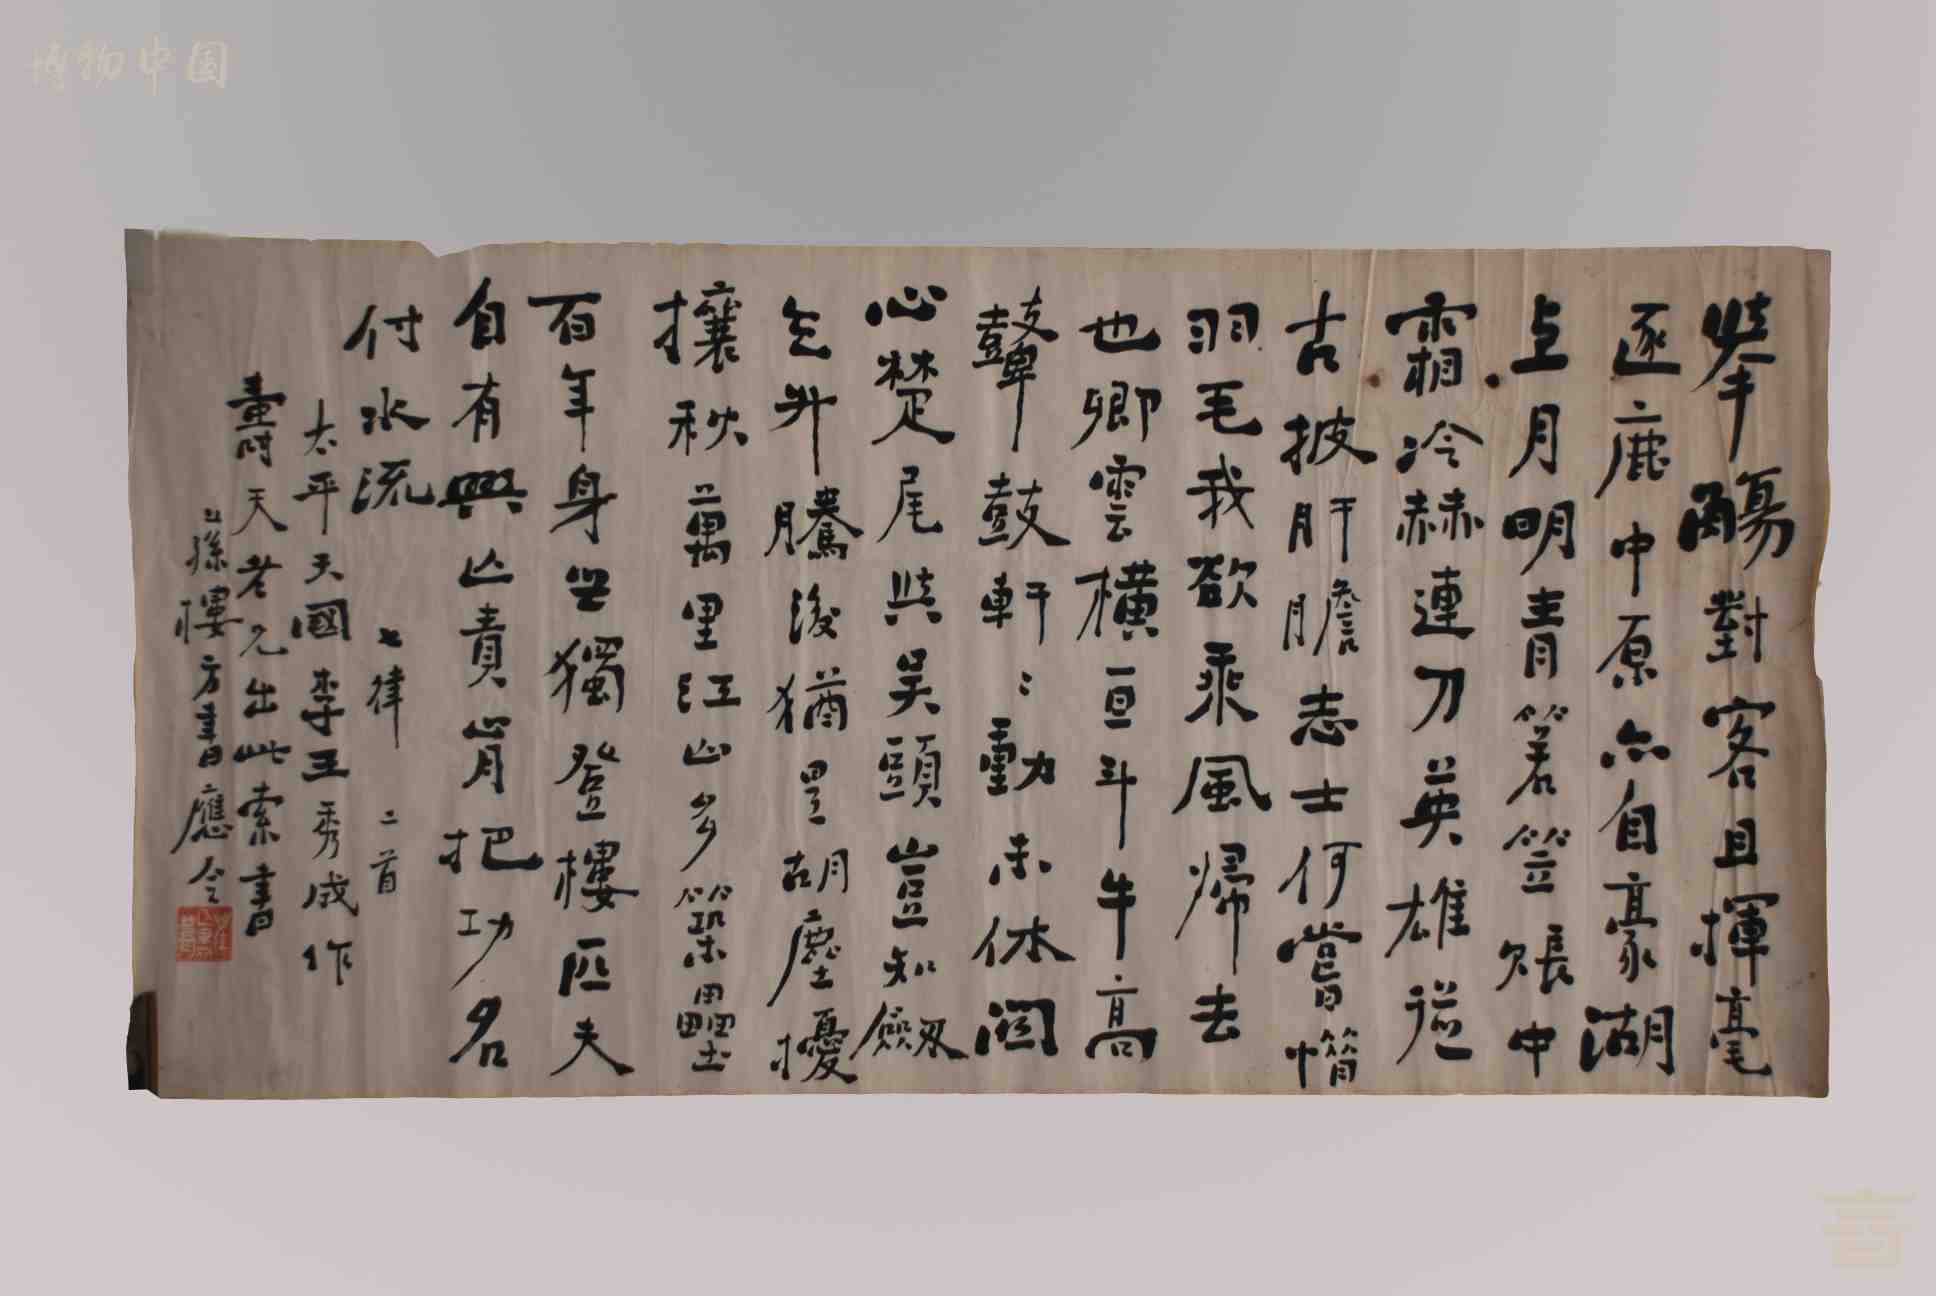 博物中国
舉觴對客且揮毫
逐鹿中原亦自豪湖
上月明青箬笠帳中
霜冷赫連刀英雄從
古披肝膽志士何嘗惜
羽毛我欲乘風歸去
也卿雲橫亘斗牛高
鼙鼓軒〻動未休關
心楚尾與吳頭豈知劍
气升騰後猶是胡塵擾
攘秋萬里江山多築壘
百年身世獨登樓匹夫
自有興亡責肯把功名
付水流 七律 二首
太平天國李王秀成作
天老兄出此索書
孫樓方書應令